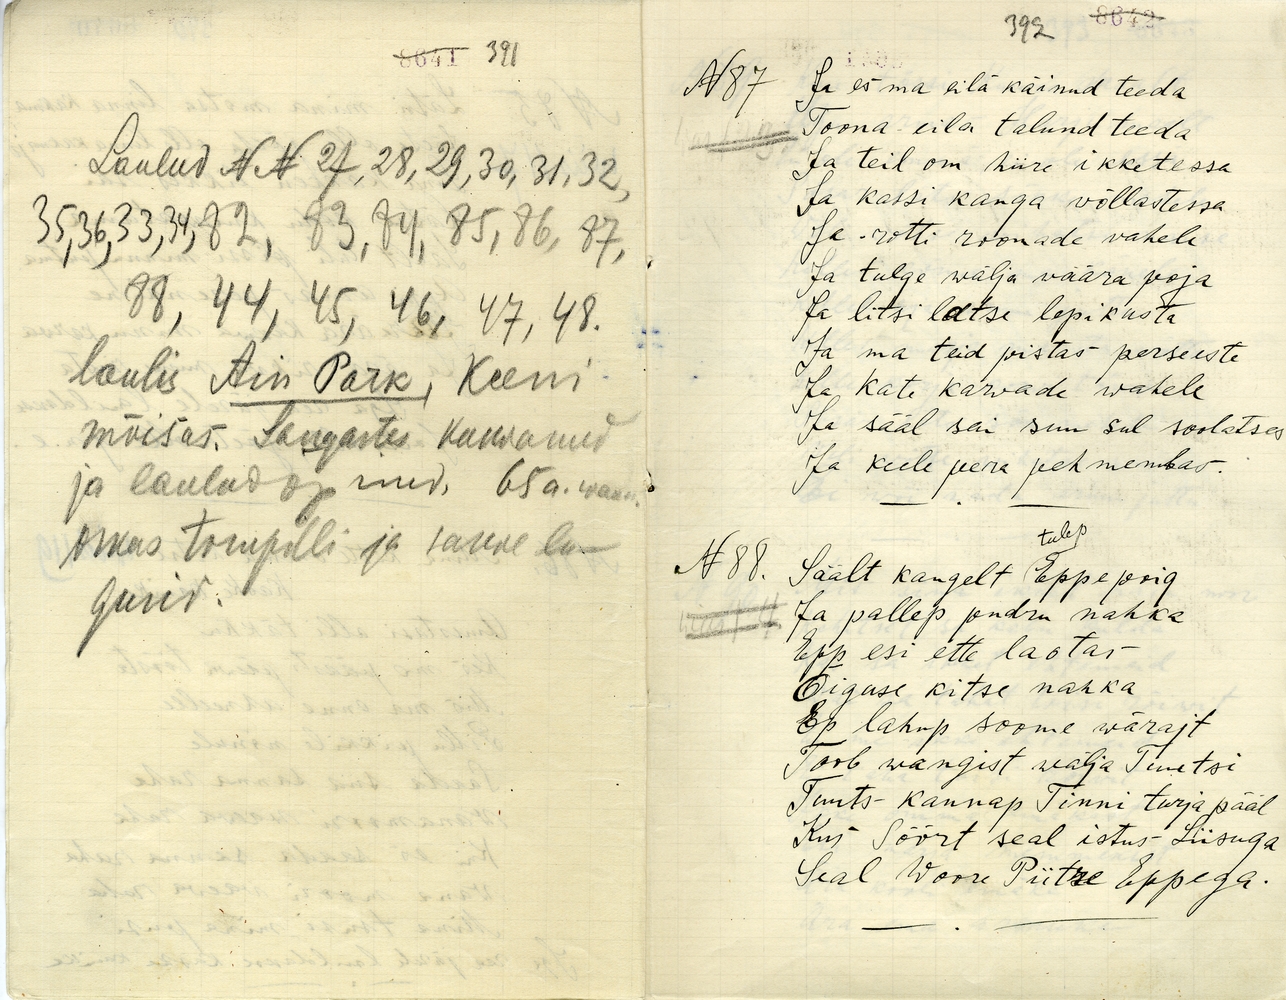 8641 391
Laulud N N 27, 28, 29, 30, 31, 32,
35, 36, 33, 34, 82, 83, 84, 85, 86, 87,
88, 44, 45, 46, 47, 48.
laulis Ain Park, Keeni
mõisas. Sangastes
ja laulud 65 a.
oskas torupilli ja
gusid.
392 8642
N 87 Ja es ma eilä käinud teeda
Toona eila talund teeda
Ja teil om hiire ikketessa
Ja kassi kanga võllastessa
Ja rotti roonade vahele
Ja tulge wälja väära poja
Ja litsi latse lepikusta
Ja ma teid pistas perseeste
Ja kate karwade wahele
Ja sääl sai suu sul soolatses
Ja keele pera pehmembas.
tulep
N 88. Säält kangelt Eppe poig
Ja pallep pudru nahka
Epp esi ette laotas
Õiguse kitse nahka
Ep lahup soome wärajt
Toob wangist wälja Tuutsi
Tuuts kannap Tinni turja pääl
Kus Söört seal istus Liisuga
Seal Woore Piitre Eppega.